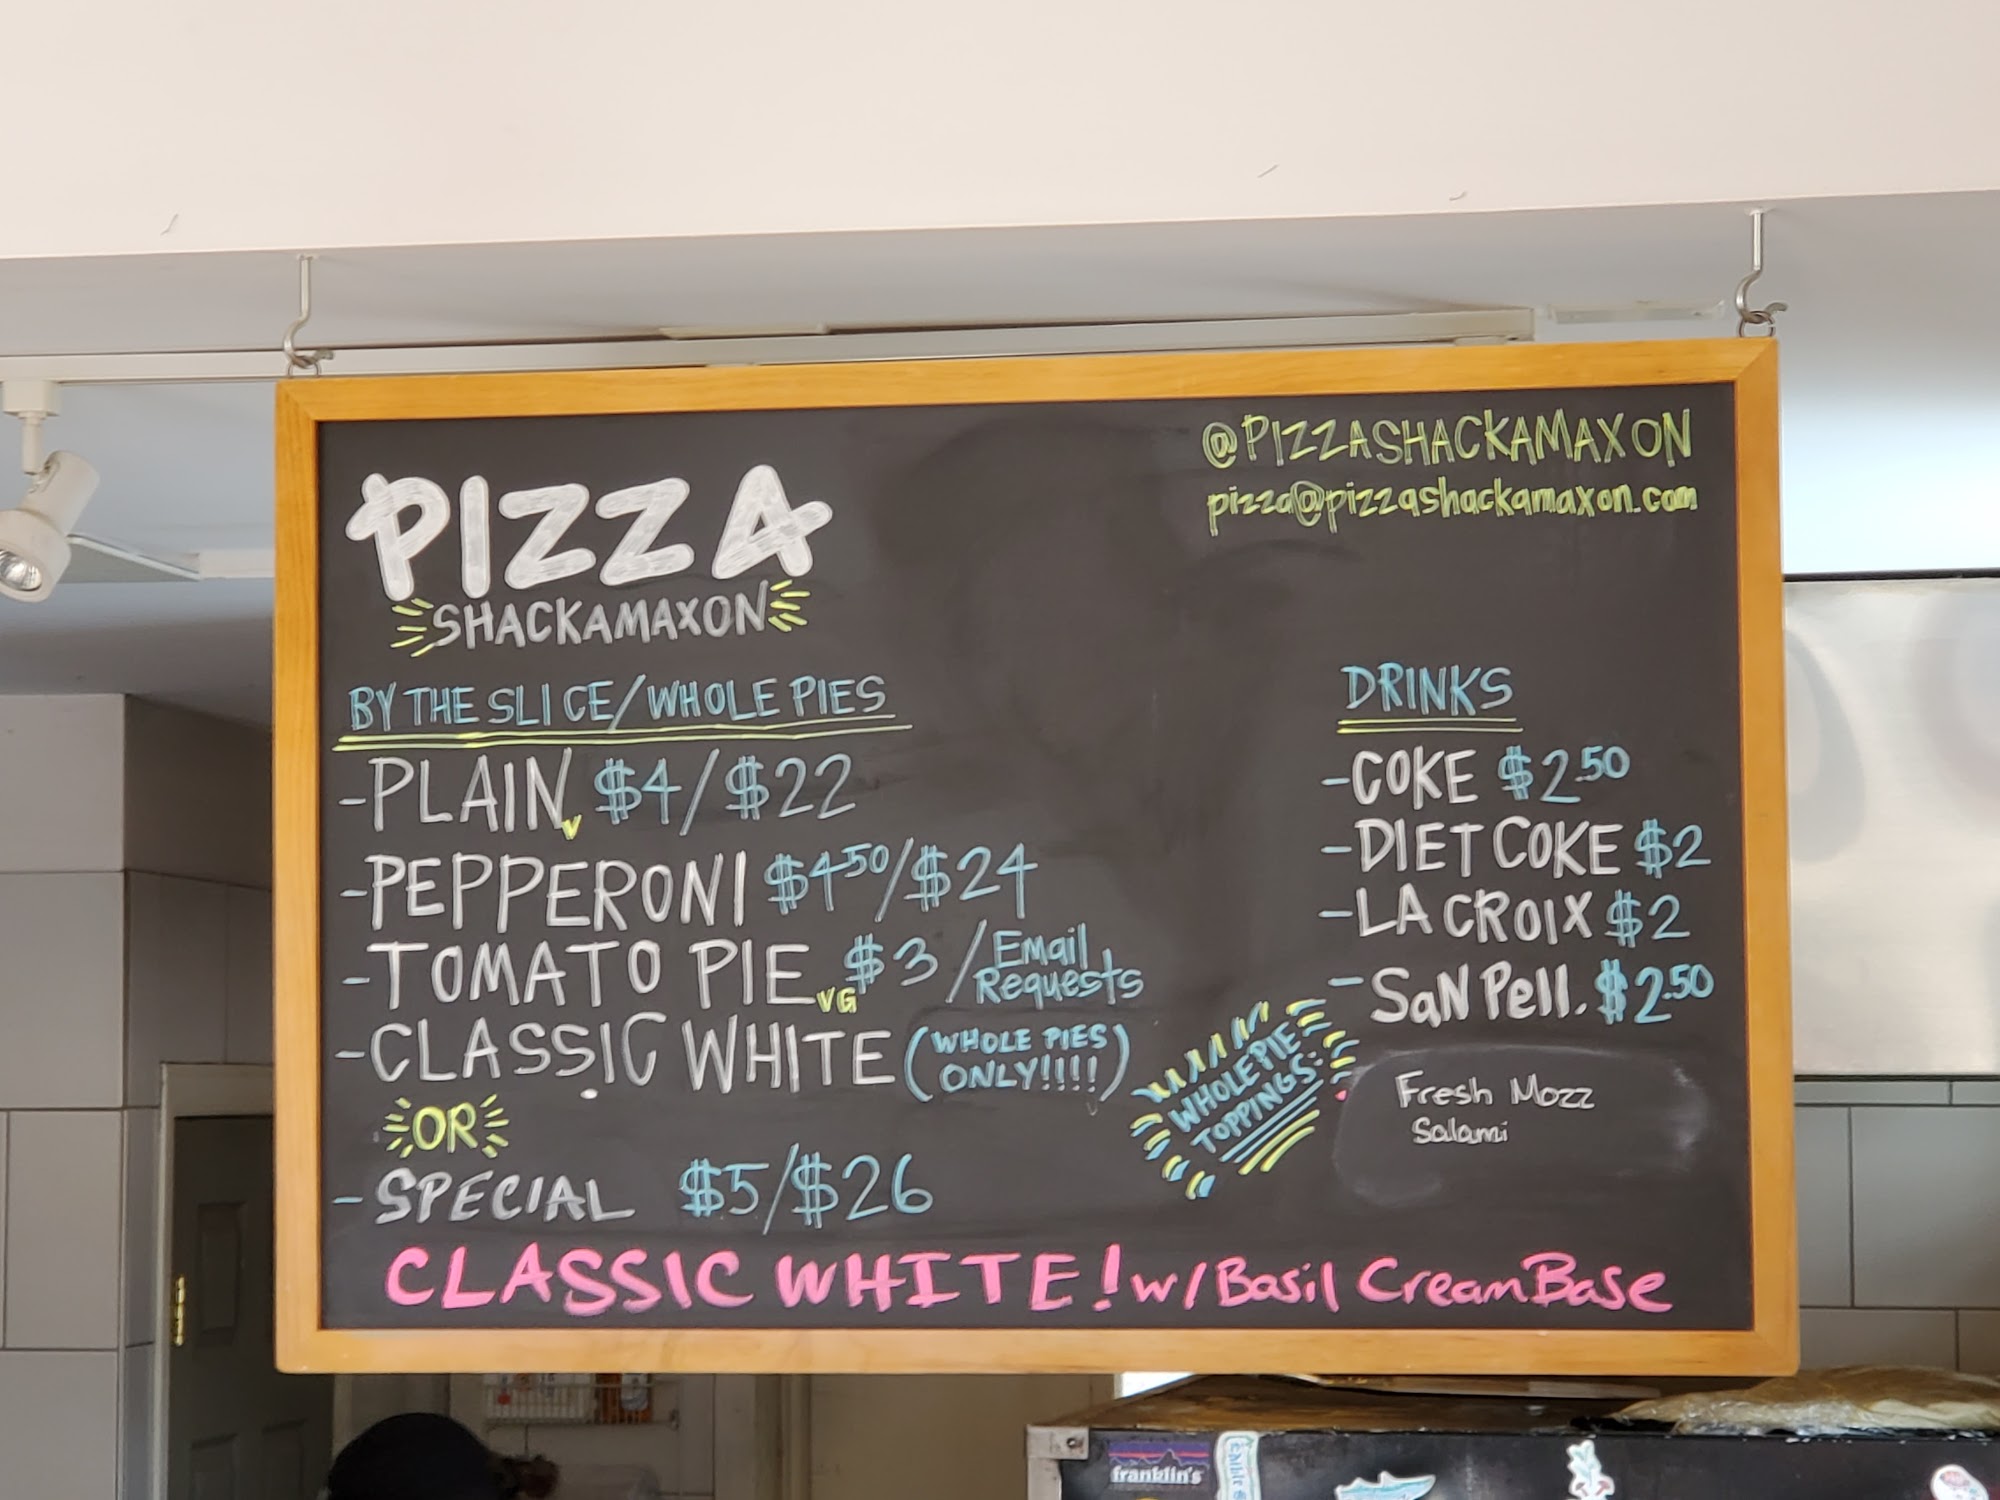 @PIZZASHACKAMAXON
pizza@pizzashackamaxon.com
PIZZA
SHACKAMAXON
BY THE SLICE/WHOLE PIES
-PLAIN V $4/$22
-PEPPERONI $4.50/$24
-TOMATO PIE VG $3/Email Requests
-CLASSIC WHITE (WHOLE PIES ONLY!!!!)
OR
-SPECIAL $5/$26
DRINKS
-COKE $2.50
-DIET COKE $2
-LA CROIX $2
-SaN Pell. $2.50
WHOLE PIE
TOPPINGS:
Fresh Mozz
Salami
CLASSIC WHITE! w/Basil Cream Base
franklin's